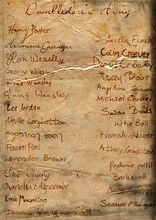 Dumbledore's Army
Harry Potter
Hermione Granger
Ron Weasley
George Weasley
Fred Weasley
Ginny Weasley
Lee Jordan
Neville Longbottom
Lavender Brown
Cho Chang
Marietta Edgecombe
Ernie Macmillan
Justin Finch
Colin Creevey
Dennis Creevey
Terry Boot
Angelina
Michael Corner
Susan
Katie Bell
Hannah Abbott
Anthony Goldstein
Padma Patil
Seamus Finnigan